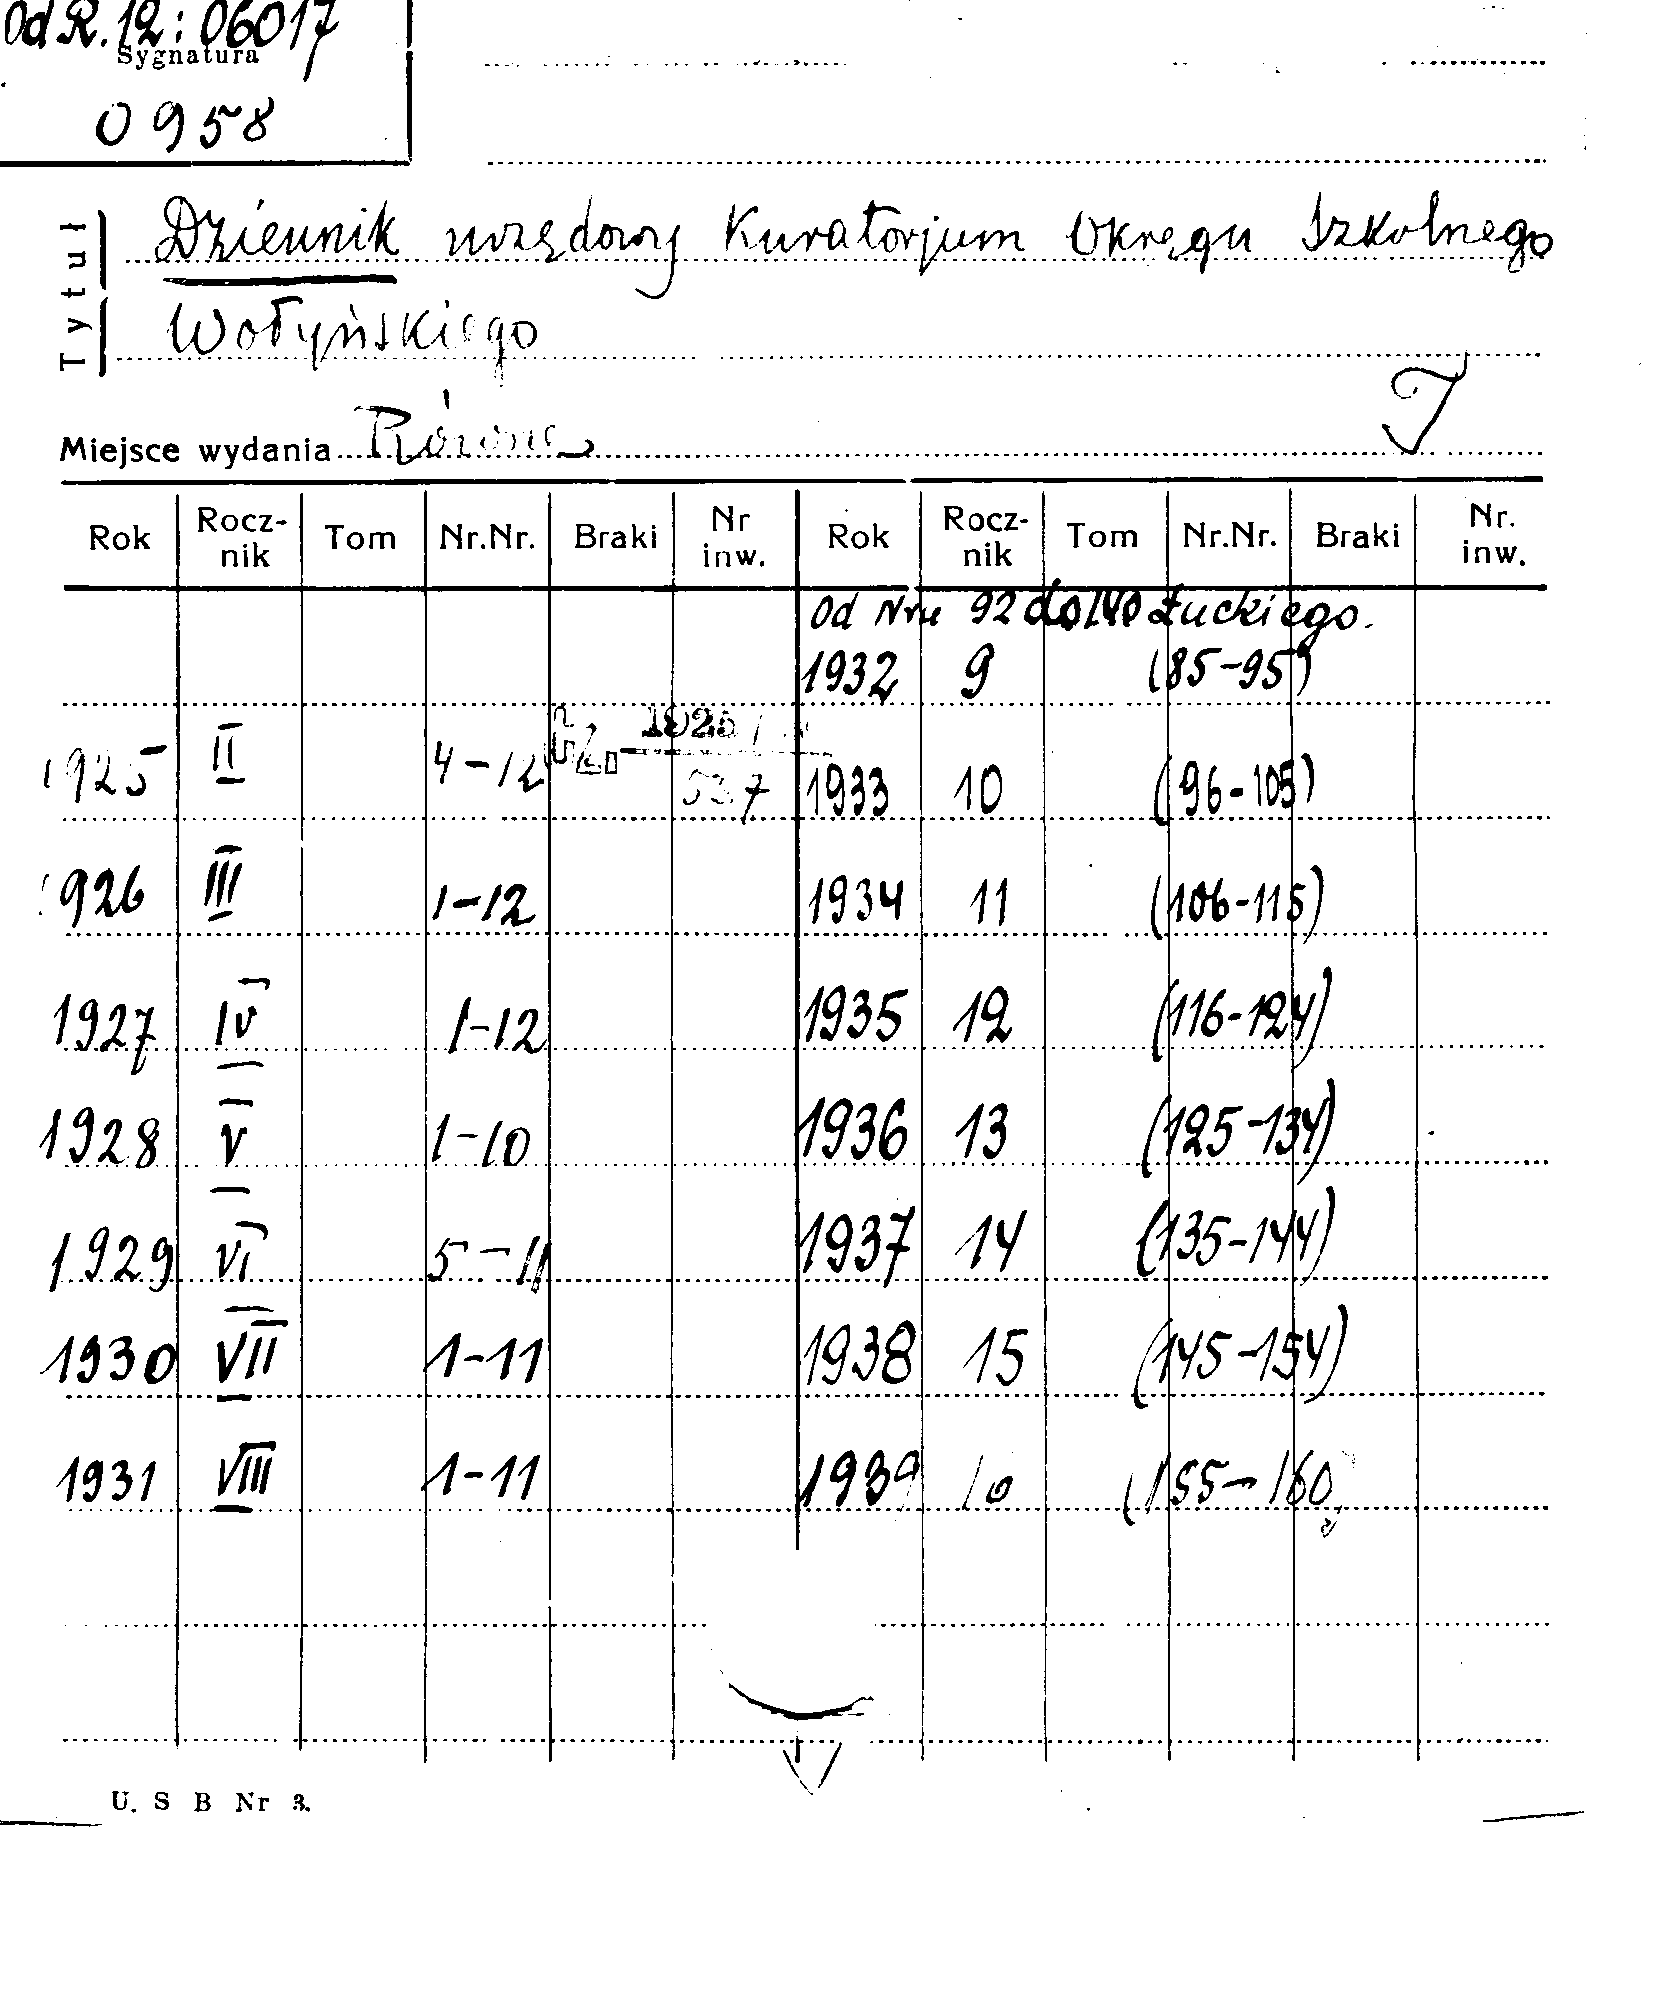 Od R. 12: 06017
Sygnatura
0958
Tytuł
Dziennik urzędowy Kuratorjum Okręgu Szkolnego
Wołyńskiego
Miejsce wydania Równe
Rok Rocz-nik Tom Nr.Nr. Braki Nr inw. Rok Rocz-nik Tom Nr.Nr. Braki Nr. inw.
Od Nru 92 do 140 Łuckiego.
1932 9 (85-95)
1925 II 4-12 Cz. 1925 537 1933 10 (96-105)
1926 III 1-12 1934 11 (106-115)
1927 IV 1-12 1935 12 (116-124)
1928 V 1-10 1936 13 (125-134)
1929 VI 5-11 1937 14 (135-144)
1930 VII 1-11 1938 15 (145-154)
1931 VIII 1-11 1939 (155-160
U. S B Nr 3.